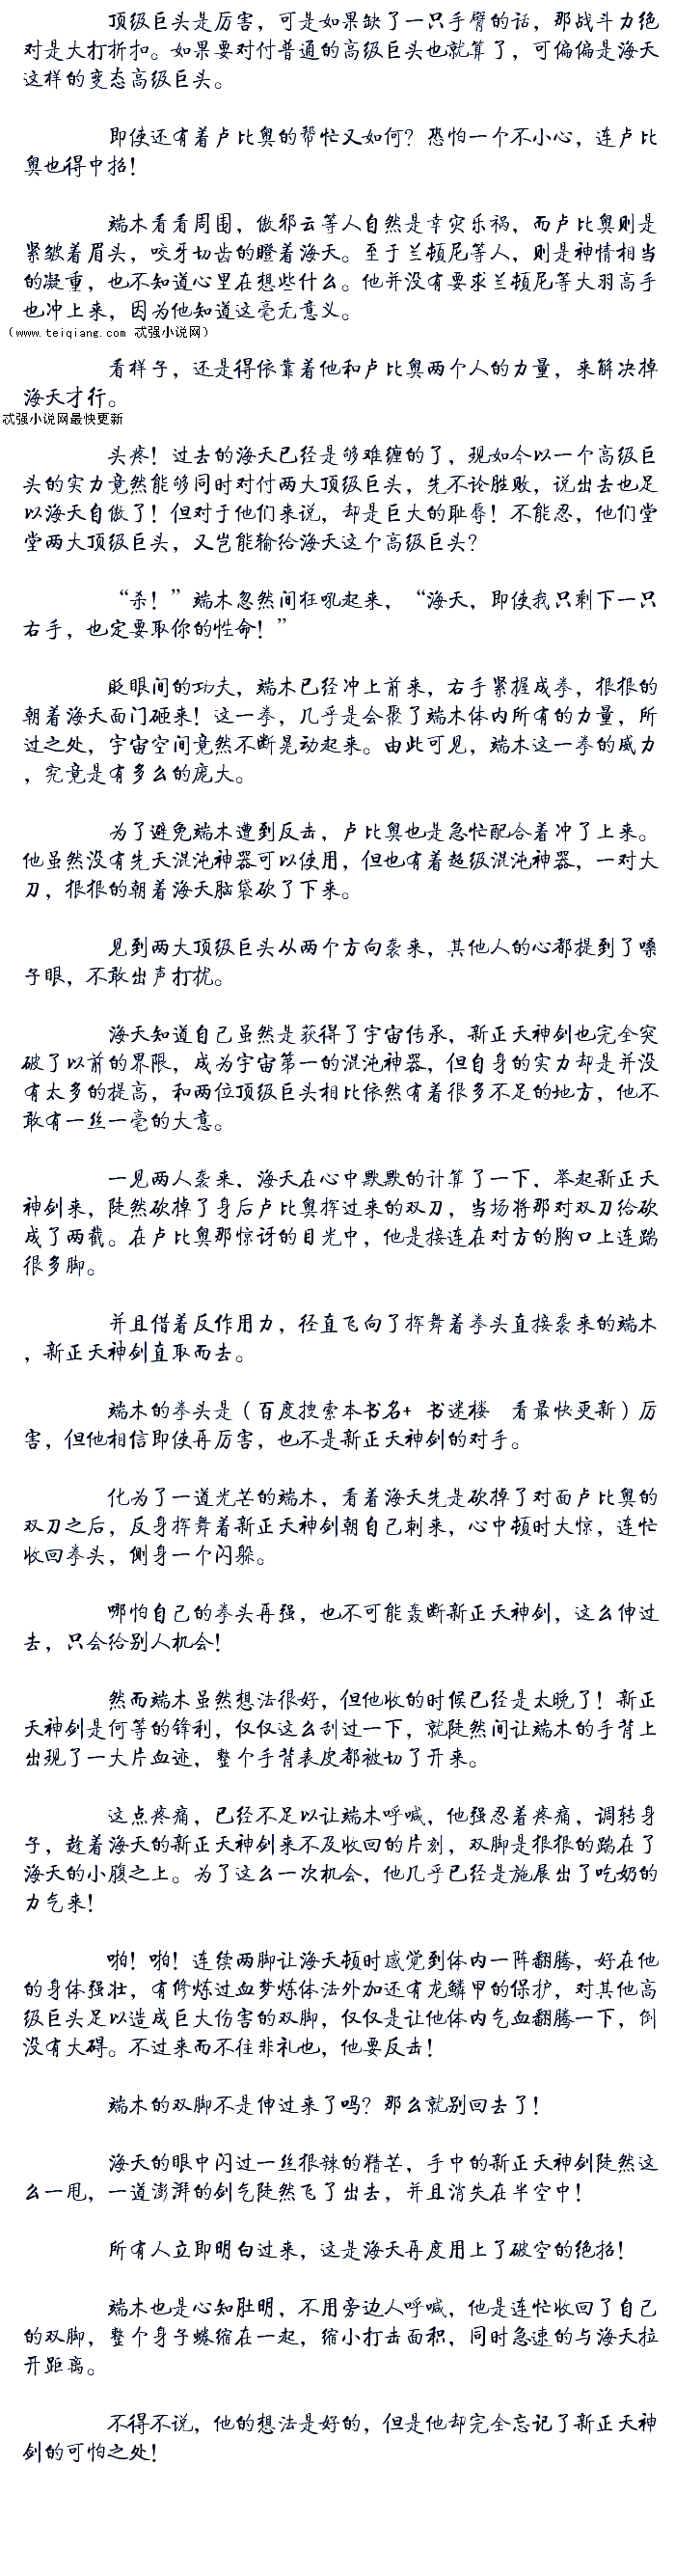 顶级巨头是厉害，可是如果缺了一只手臂的话，那战斗力绝
对是大打折扣。如果要对付普通的高级巨头也就算了，可偏偏是海天
这样的变态高级巨头。
即使还有着卢比奥的帮忙又如何？恐怕一个不小心，连卢比
奥也得中招！
端木看看周围，傲邪云等人自然是幸灾乐祸，而卢比奥则是
紧皱着眉头，咬牙切齿的瞪着海天。至于兰顿尼等人，则是神情相当
的凝重，也不知道心里在想些什么。他并没有要求兰顿尼等大羽高手
也冲上来，因为他知道这毫无意义。
（www.teiqiang.com 忒强小说网）
看样子，还是得依靠着他和卢比奥两个人的力量，来解决掉
海天才行。
忒强小说网最快更新
头疼！过去的海天已经是够难缠的了，现如今以一个高级巨
头的实力竟然能够同时对付两大顶级巨头，先不论胜败，说出去也足
以海天自傲了！但对于他们来说，却是巨大的耻辱！不能忍，他们堂
堂两大顶级巨头，又岂能输给海天这个高级巨头？
“杀！”端木忽然间狂吼起来，“海天，即使我只剩下一只
右手，也定要取你的性命！”
眨眼间的功夫，端木已经冲上前来，右手紧握成拳，狠狠的
朝着海天面门砸来！这一拳，几乎是会聚了端木体内所有的力量，所
过之处，宇宙空间竟然不断晃动起来。由此可见，端木这一拳的威力
，究竟是有多么的庞大。
为了避免端木遭到反击，卢比奥也是急忙配合着冲了上来。
他虽然没有先天混沌神器可以使用，但也有着超级混沌神器，一对大
刀，狠狠的朝着海天脑袋砍了下来。
见到两大顶级巨头从两个方向袭来，其他人的心都提到了嗓
子眼，不敢出声打扰。
海天知道自己虽然是获得了宇宙传承，新正天神剑也完全突
破了以前的界限，成为宇宙第一的混沌神器，但自身的实力却是并没
有太多的提高，和两位顶级巨头相比依然有着很多不足的地方，他不
敢有一丝一毫的大意。
一见两人袭来，海天在心中默默的计算了一下，举起新正天
神剑来，陡然砍掉了身后卢比奥挥过来的双刀，当场将那对双刀给砍
成了两截。在卢比奥那惊讶的目光中，他是接连在对方的胸口上连踹
很多脚。
并且借着反作用力，径直飞向了挥舞着拳头直接袭来的端木
，新正天神剑直取而去。
端木的拳头是（百度搜索本书名+ 书迷楼 看最快更新）厉
害，但他相信即使再厉害，也不是新正天神剑的对手。
化为了一道光芒的端木，看着海天先是砍掉了对面卢比奥的
双刀之后，反身挥舞着新正天神剑朝自己刺来，心中顿时大惊，连忙
收回拳头，侧身一个闪躲。
哪怕自己的拳头再强，也不可能轰断新正天神剑，这么伸过
去，只会给别人机会！
然而端木虽然想法很好，但他收的时候已经是太晚了！新正
天神剑是何等的锋利，仅仅这么刮过一下，就陡然间让端木的手背上
出现了一大片血迹，整个手背表皮都被切了开来。
这点疼痛，已经不足以让端木呼喊，他强忍着疼痛，调转身
子，趁着海天的新正天神剑来不及收回的片刻，双脚是狠狠的踹在了
海天的小腹之上。为了这么一次机会，他几乎已经是施展出了吃奶的
力气来！
啪！啪！连续两脚让海天顿时感觉到体内一阵翻腾，好在他
的身体强壮，有修炼过血梦炼体法外加还有龙鳞甲的保护，对其他高
级巨头足以造成巨大伤害的双脚，仅仅是让他体内气血翻腾一下，倒
没有大碍。不过来而不往非礼也，他要反击！
端木的双脚不是伸过来了吗？那么就别回去了！
海天的眼中闪过一丝狠辣的精芒，手中的新正天神剑陡然这
么一甩，一道澎湃的剑气陡然飞了出去，并且消失在半空中！
所有人立即明白过来，这是海天再度用上了破空的绝招！
端木也是心知肚明，不用旁边人呼喊，他是连忙收回了自己
的双脚，整个身子蜷缩在一起，缩小打击面积，同时急速的与海天拉
开距离。
不得不说，他的想法是好的，但是他却完全忘记了新正天神
剑的可怕之处！